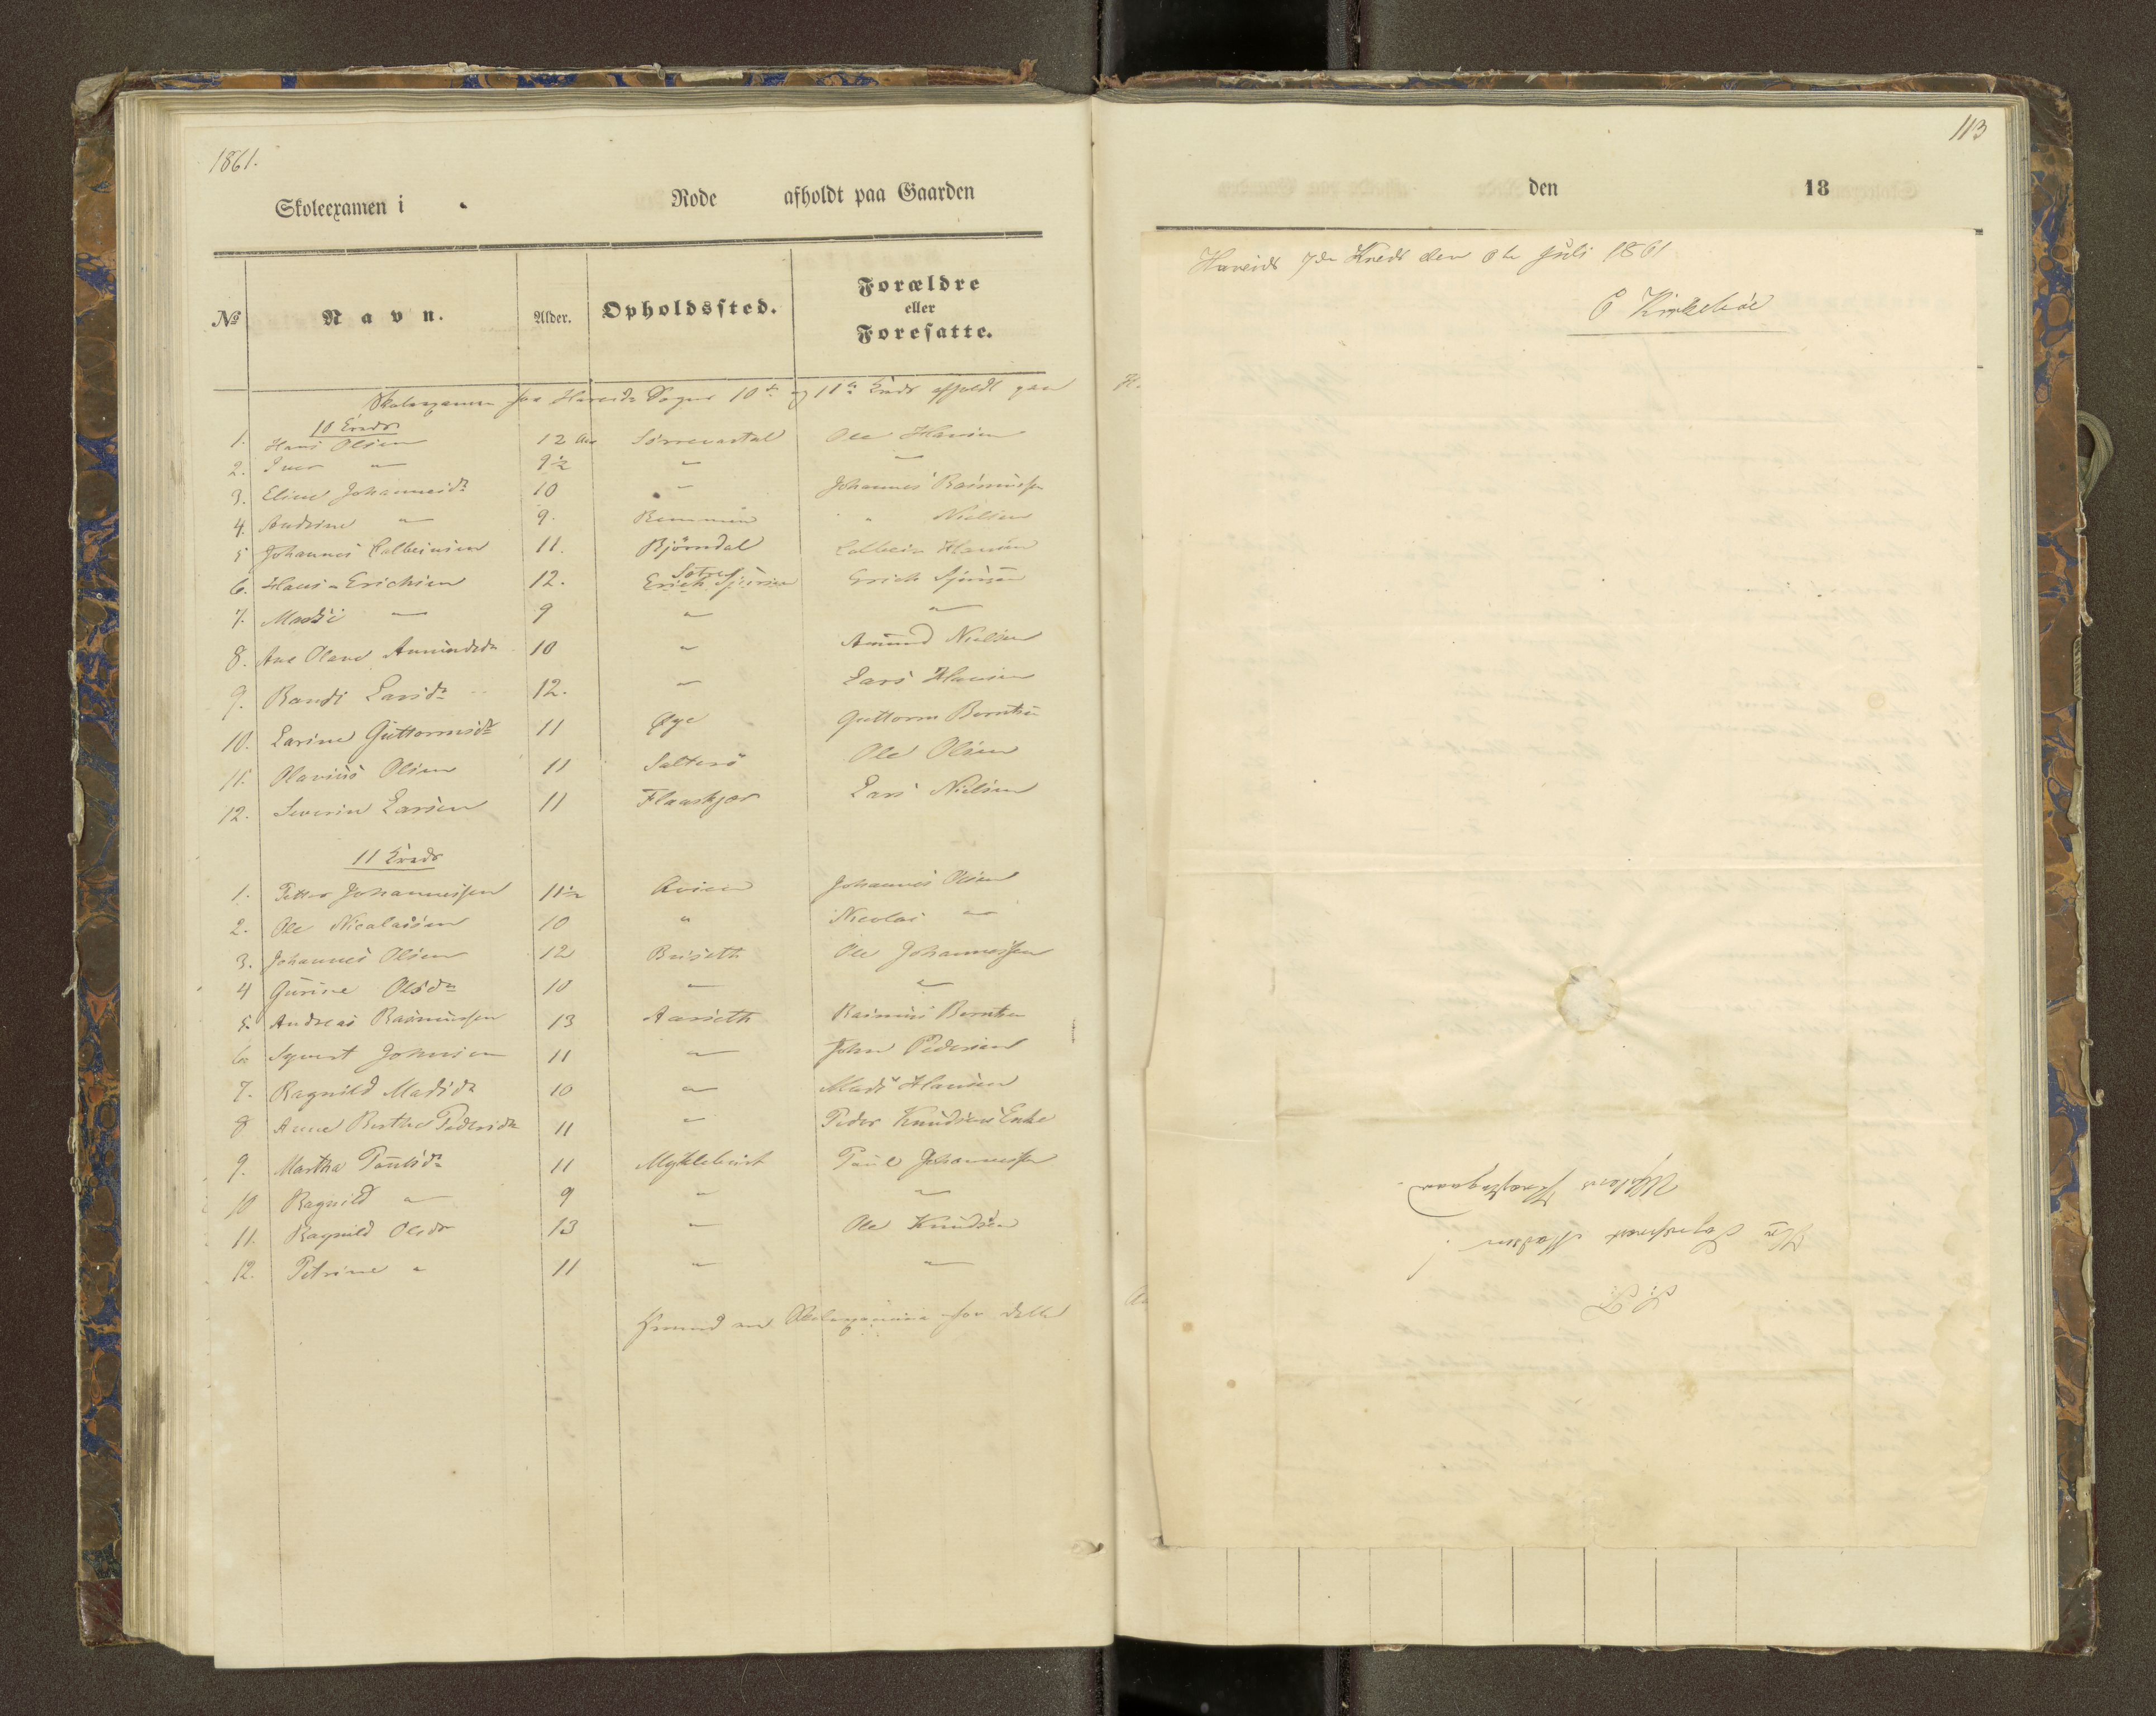 1861.
Skoleexamen i Rode afholdt paa Gaarden
№ Navn. Alder. Opholdssted. Forældre eller Foresatte.
Skoleexamen for Hareids Sogns 10de og 11te Kreds afholdt paa
10 Kreds
1. Hans Olsen 12 Aar Ole Hansen
2. Iver " 9½ " "
3. Eline Johannesdr 10 " Johannes Rasmussen
4. Andrine " 9. " Nielsen
5 Johannes Colbeinsen 11. Bjørndal Colbein Hansen
6. Hans Erichsen 12. Erich Sjursen Erich Sjursen
7. Mads " 9 " "
8. Ane Olave Amundsdr 10 " Amund Nielsen
9. Randi Larsdr 12. " Lars Hansen
10. Larine Guttormsdr 11 Øye Guttorm Berntsen
11. Olavius Olsen 11 Ole Olsen
12. Severin Larsen 11 Flaaskjær Lars Nielsen
11 Kreds
1. Petter Johannessen 11½ Johannes Olsen
2. Ole Nicolaisen 10 " Nicolai "
3. Johannes Olsen 12 Ole Johannessen
4 Gurine Olsdr 10 " "
5. Andreas Rasmussen 13 Aarseth Rasmus Berntsen
6. Syvert Johnsen 11 " John Pedersen
7. Ragnild Madsdr 10 " Mads Hansen
8 Anne Berthe Pedersdr 11 " Peder Knudsens Enke
9. Martha Paulsdr 11 Myklebust Paul Johannessen
10 Ragnild " 9 " "
11. Ragnild Olsdr 13 " Ole Knudsen
12. Petrine " 11 " "
Skoleexamina for dette
113
den 18
Hareids 7de Kreds den Juli 1861
Kirkebøe
S. T.
Hr Sognepræst Madsen!
Ulfstens Præstegaard.